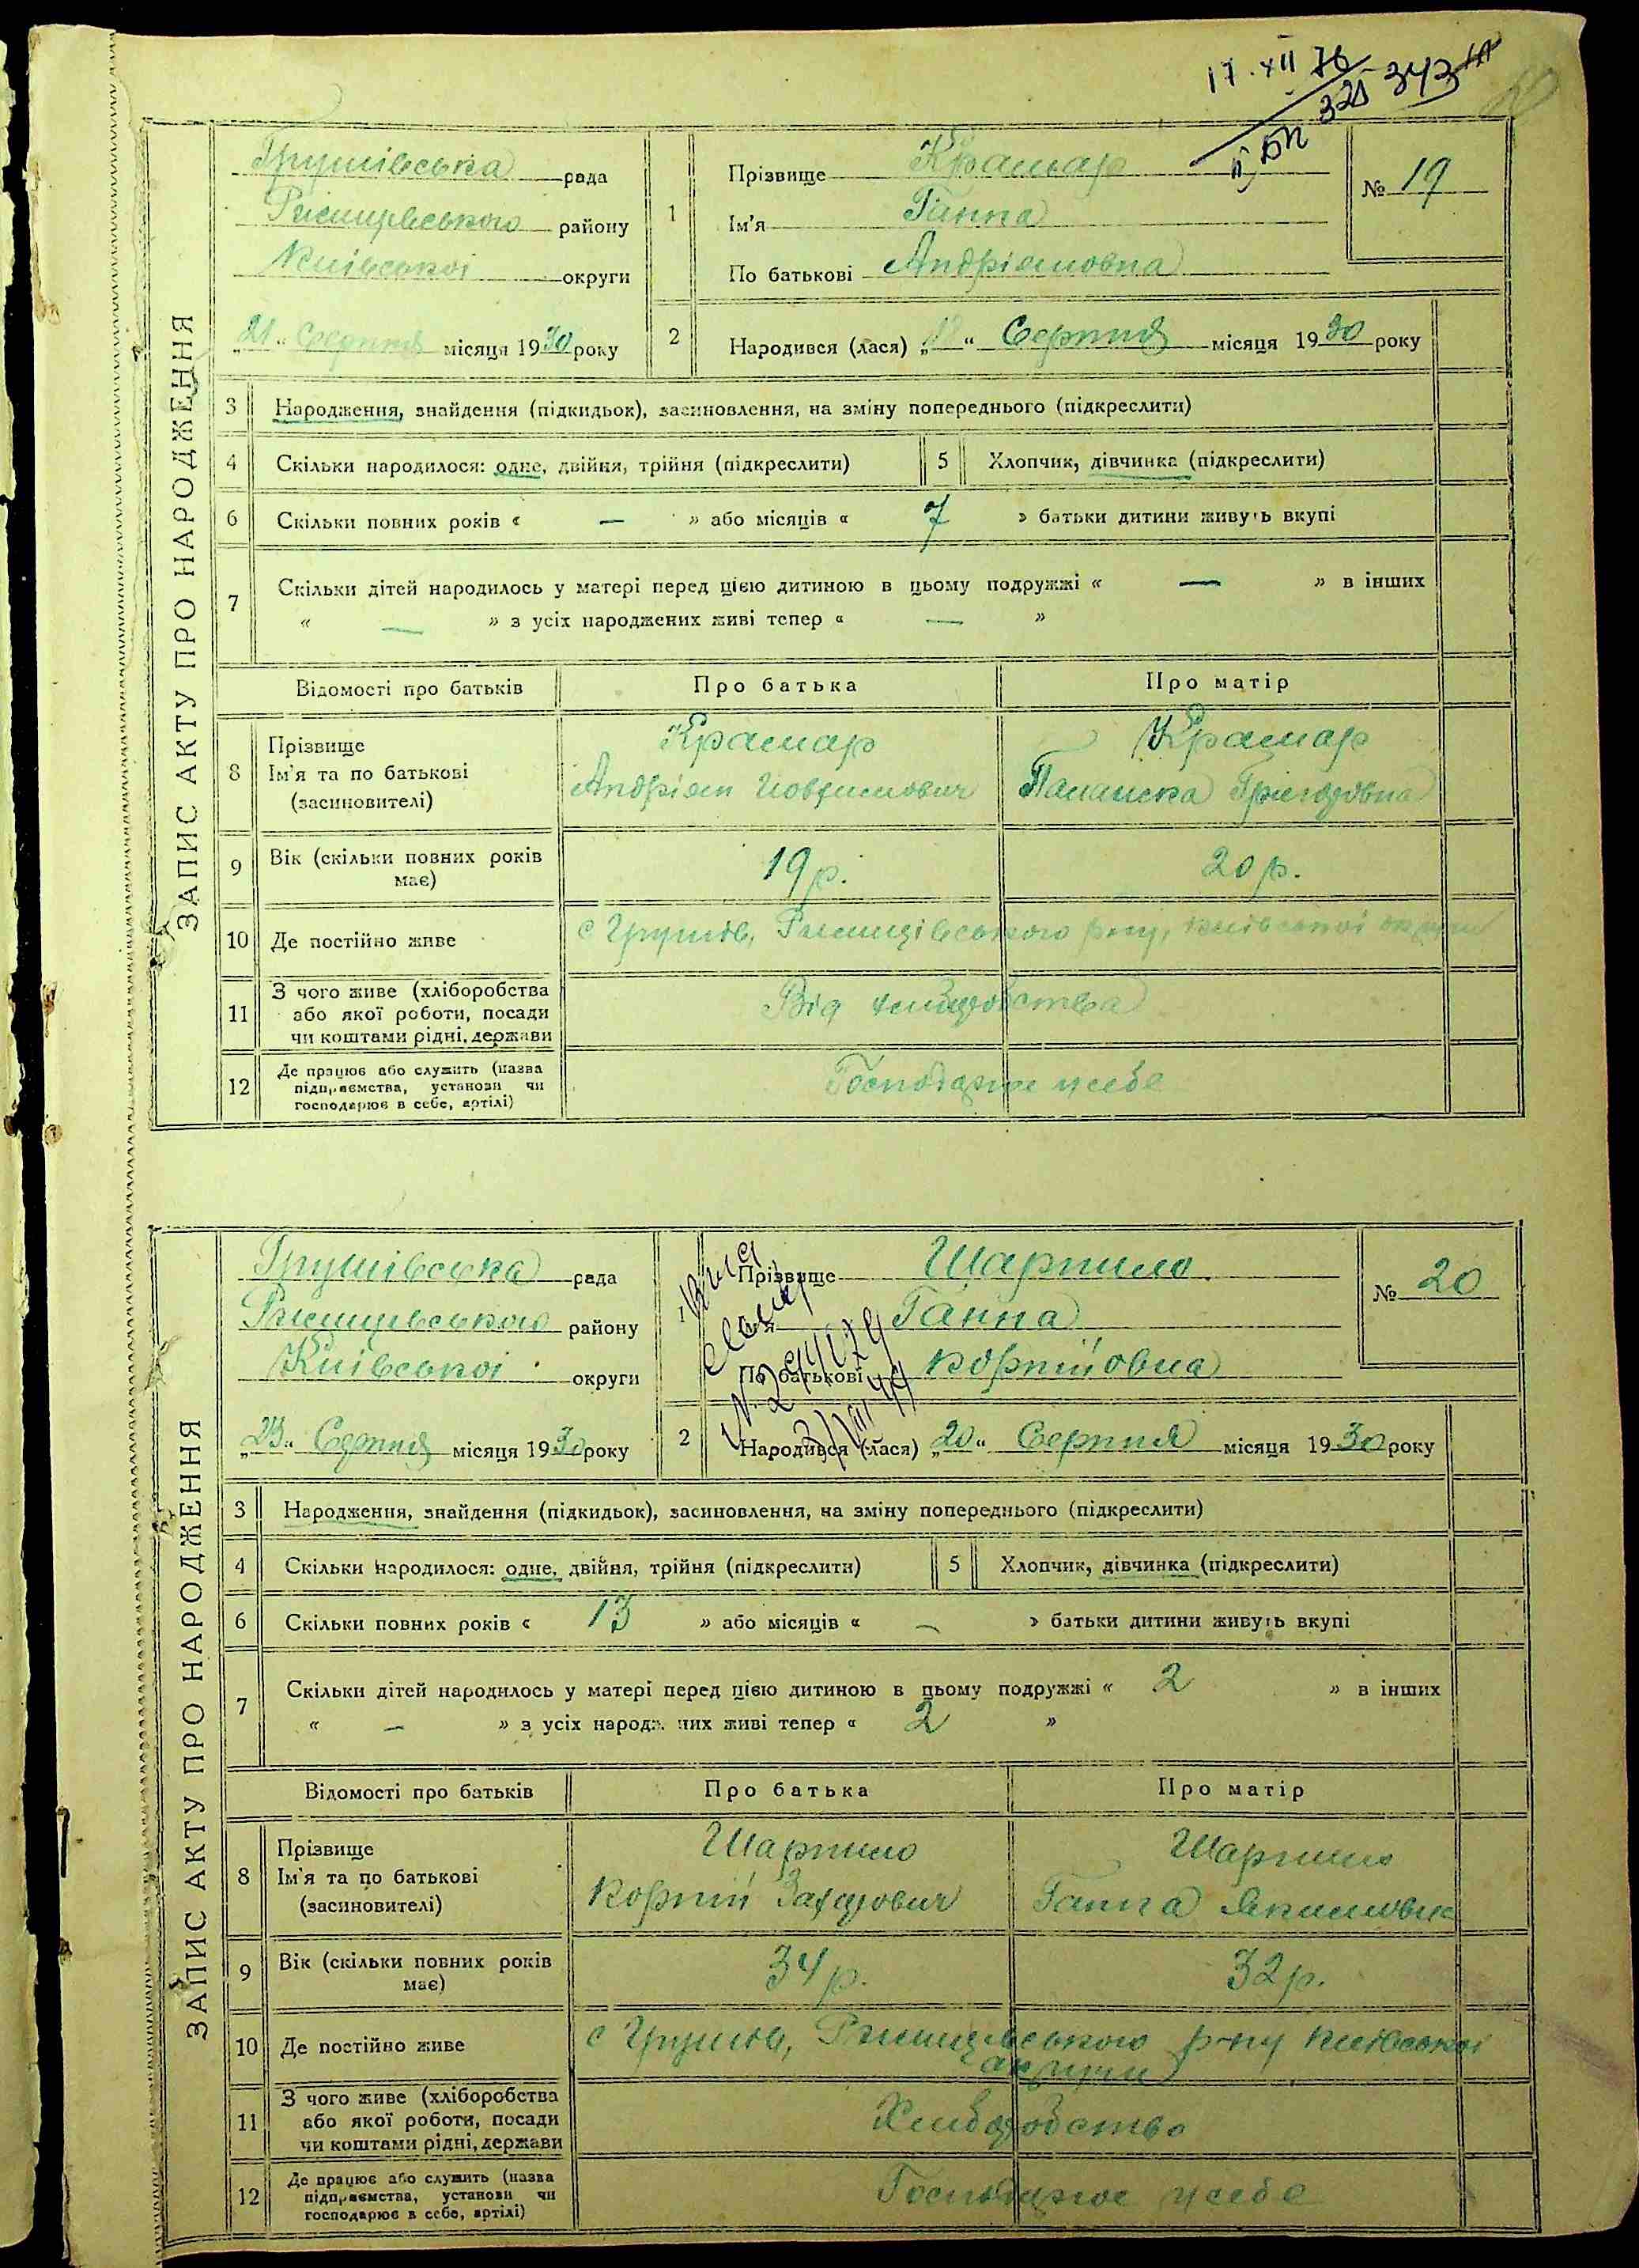 17.XII 76
325 343
ЗАПИС АКТУ ПРО НАРОДЖЕННЯ
Грушівська рада
Ржищівського району
Київської округи
„21“ Серпня місяця 1930 року
1
Прізвище Крамар
Ім'я Ганна
По батькові Андріямовна
№ 19
2
Народився (лася) „ “ Серпня місяця 1930 року
3 Народження, знайдення (підкидьок), засиновлення, на зміну попереднього (підкреслити)
4 Скільки народилося: одне, двійня, трійня (підкреслити) 5 Хлопчик, дівчинка (підкреслити)
6 Скільки повних років « — » або місяців « 7 » батьки дитини живуть вкупі
7 Скільки дітей народилось у матері перед цією дитиною в цьому подружжі « — » в інших
« — » з усіх народжених живі тепер « — »
Відомості про батьків Про батька Про матір
8 Прізвище
Ім'я та по батькові
(засиновителі)
Крамар
Андріям Йовхимович
Крамар
Паламска Григоровна
9 Вік (скільки повних років має) 19 р. 20 р.
10 Де постійно живе с Грушів, Ржищівського р-ну, київської округи
11 З чого живе (хліборобства
або якої роботи, посади
чи коштами рідні, держави
Від хліборобства
12 Де працює або служить (назва
підприємства, установи чи
господарює в себе, артілі)
Господарює у себе
ЗАПИС АКТУ ПРО НАРОДЖЕННЯ
Грушівська рада
Ржищівського району
Київської округи
„23“ Серпня місяця 1930 року
1
Прізвище Шарпило
Ім'я Ганна
По батькові Корнійовна
№ 20
2
Народився (лася) „20“ Серпня місяця 1930 року
3 Народження, знайдення (підкидьок), засиновлення, на зміну попереднього (підкреслити)
4 Скільки народилося: одне, двійня, трійня (підкреслити) 5 Хлопчик, дівчинка (підкреслити)
6 Скільки повних років « 13 » або місяців « — » батьки дитини живуть вкупі
7 Скільки дітей народилось у матері перед цією дитиною в цьому подружжі « 2 » в інших
« — » з усіх народжених живі тепер « 2 »
Відомості про батьків Про батька Про матір
8 Прізвище
Ім'я та по батькові
(засиновителі)
Шарпило
Корній Захарович
Шарпило
Ганна Якимовна
9 Вік (скільки повних років має) 34 р. 32 р.
10 Де постійно живе с Грушів, Ржищівського р-ну київської
округи
11 З чого живе (хліборобства
або якої роботи, посади
чи коштами рідні, держави
Хліборобство
12 Де працює або служить (назва
підприємства, установи чи
господарює в себе, артілі)
Господарює у себе